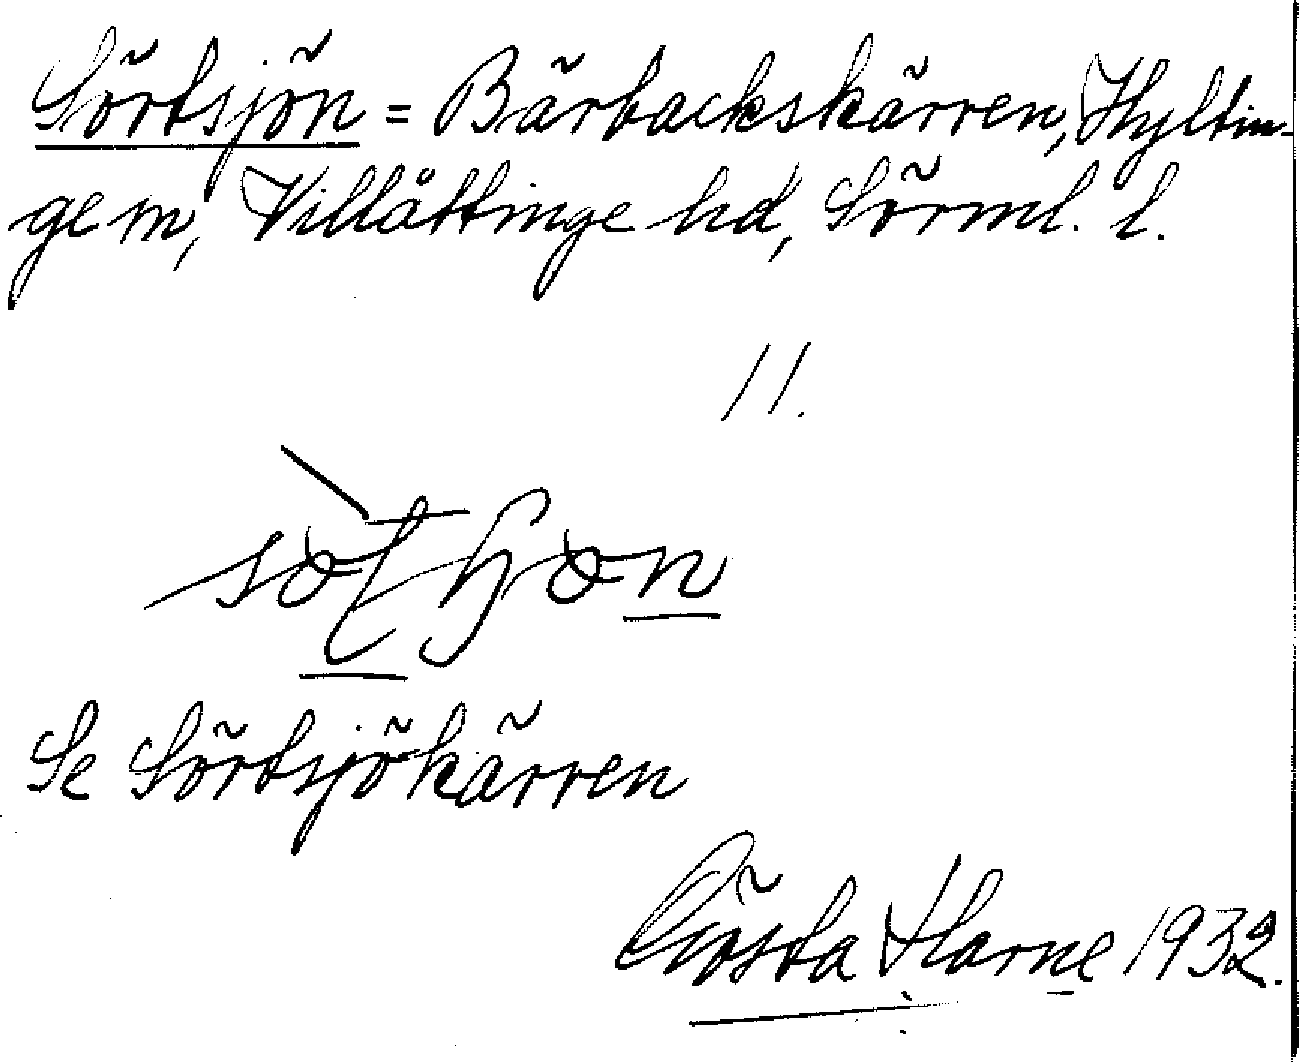 Sörtsjön = Bärbackskärren, Hyltin-
ge sn, Villåttinge hd, Sörml. l.
11.
Se Sörtsjökärren
Gösta Harne 1932.